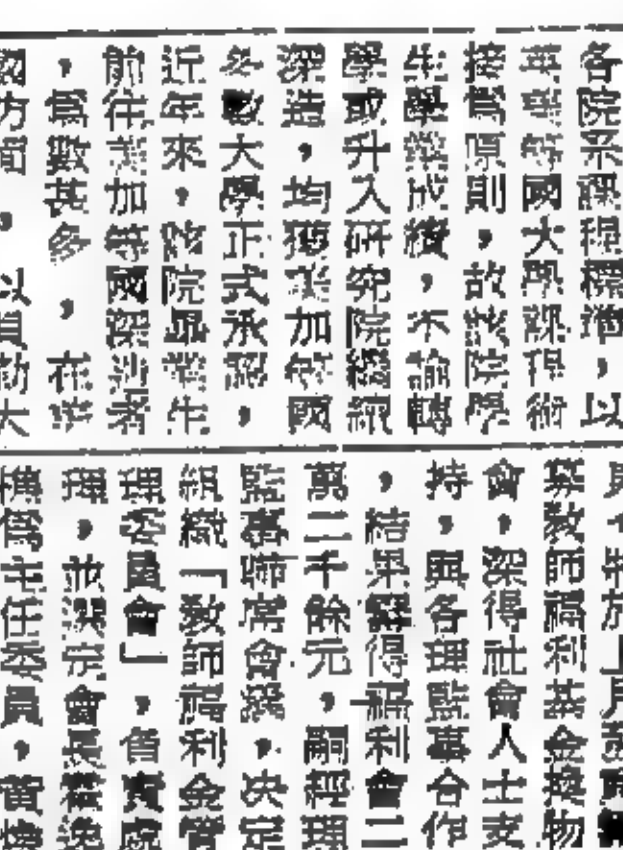 各院系課程標準,以
英美等國大學課程銜
接為原則,故該院學
生學業成績,不論轉
學或升入研究院繼續
深造,均獲美加等國
多數大學正式承認,
近年來,該院畢業生
前往美加等國深造者
,為數甚多,在
國方面,以
會,深得社會人士支
持,與各理監事合作
,結果籌得福利會二
萬二千餘元,嗣經理
監事聯席會議,決定
組織「教師福利金管
理委員會」,負責處
理,並選定會長
為主任委員,黃